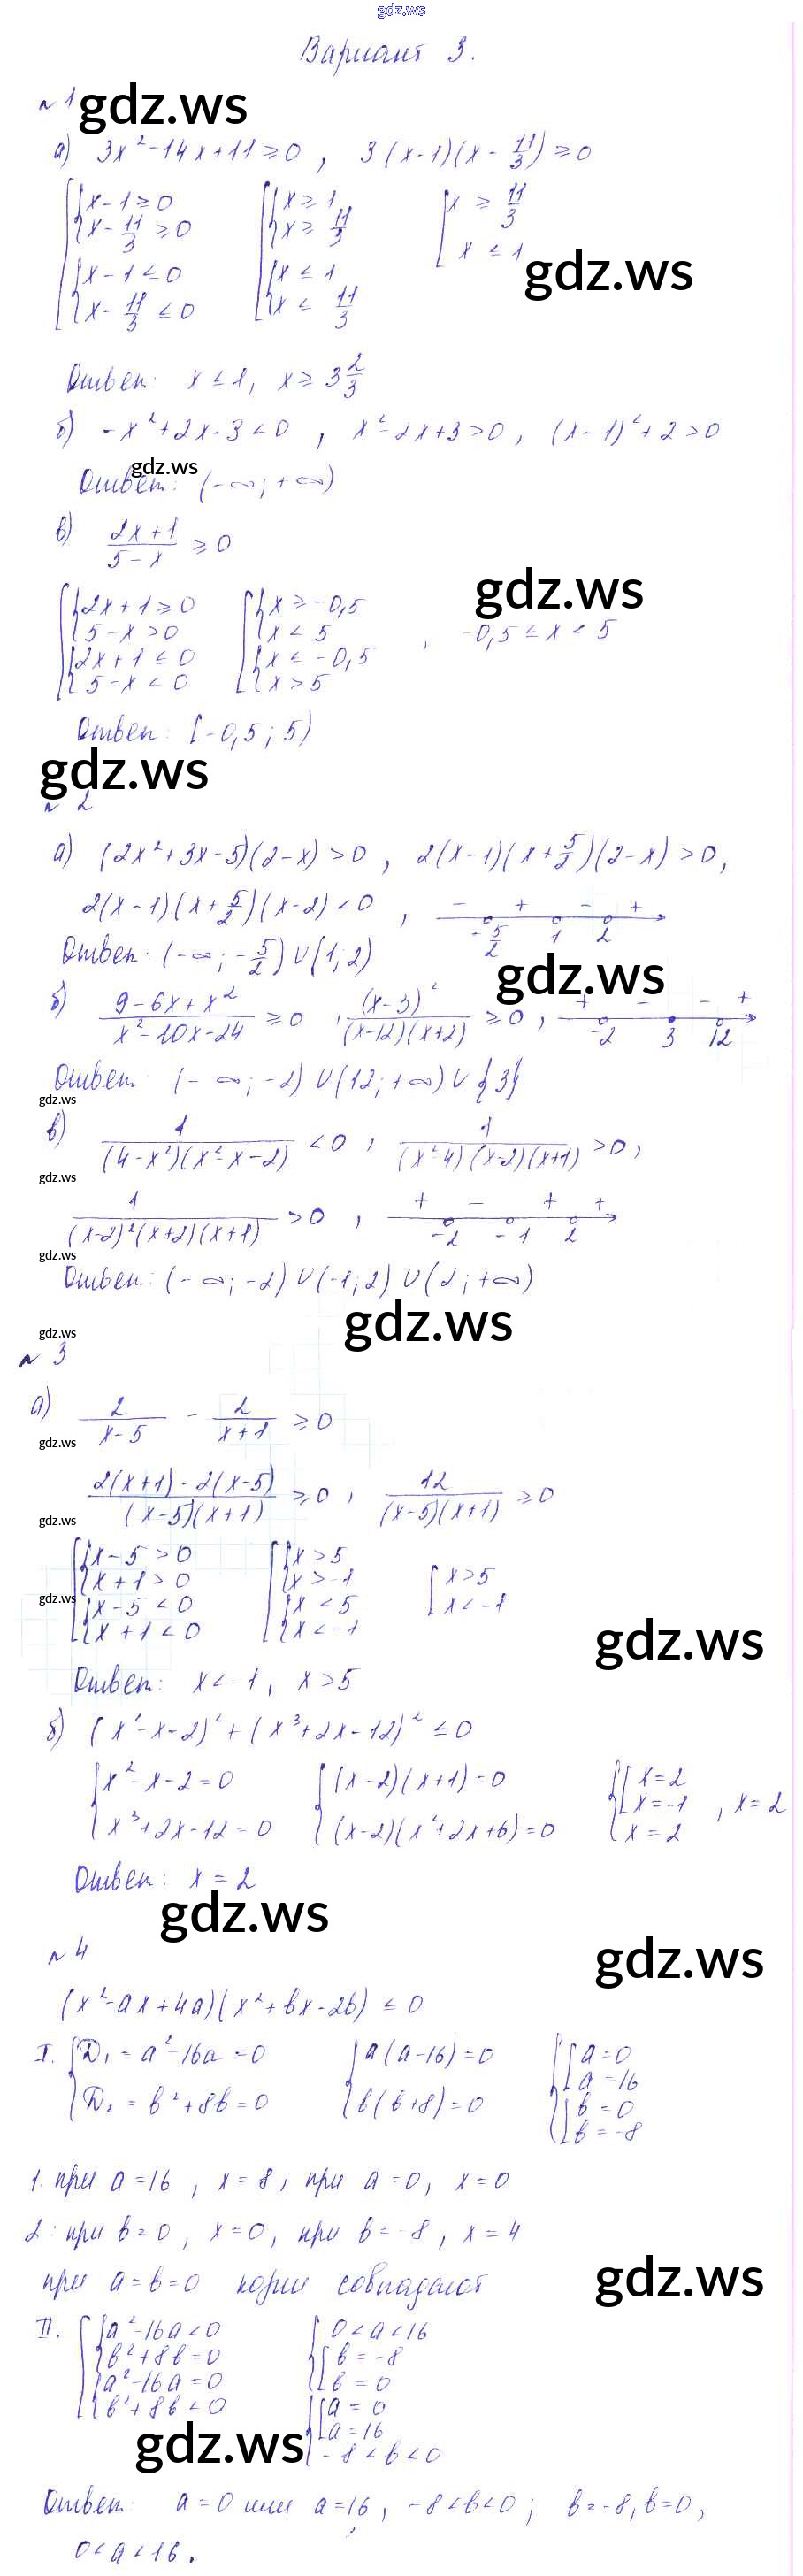 gdz.ws
Вариант 3.
№1 gdz.ws
а) 3x²-14x+11≥0, 3(x-1)(x-11/3)≥0
[{x-1≥0 [{x≥1 [x≥11/3
{x-11/3≥0 {x≥11/3 x≤1
{x-1<0 {x≤1 gdz.ws
{x-11/3≤0 {x≤11/3
Ответ: x≤1, x≥3 2/3
б) -x²+2x-3<0, x²-2x+3>0, (x-1)²+2>0
gdz.ws
Ответ: (-∞;+∞)
в) (2x+1)/(5-x) ≥0
gdz.ws
[{2x+1≥0 [{x≥-0,5
{5-x>0 {x<5 , -0,5≤x<5
{2x+1≤0 {x≤-0,5
{5-x<0 {x>5
Ответ: [-0,5;5)
gdz.ws
№2
а) (2x²+3x-5)(2-x)>0, 2(x-1)(x+5/2)(2-x)>0,
2(x-1)(x+5/2)(x-2)<0, - + - +
-5/2 1 2
Ответ: (-∞;-5/2)∪(1;2)
gdz.ws
б) (9-6x+x²)/(x²-10x-24) ≥0, (x-3)²/((x-12)(x+2)) ≥0, + - - +
-2 3 12
Ответ: (-∞;-2)∪(12;+∞)∪{3}
gdz.ws
в) 1/((4-x²)(x²-x-2)) <0, 1/((x²-4)(x-2)(x+1)) >0,
gdz.ws
1/((x-2)²(x+2)(x+1)) >0, + - + +
-2 -1 2
gdz.ws
Ответ: (-∞;-2)∪(-1;2)∪(2;+∞)
gdz.ws
gdz.ws
№3
а) 2/(x-5) - 2/(x+1) ≥0
gdz.ws
(2(x+1)-2(x-5))/((x-5)(x+1)) ≥0, 12/((x-5)(x+1)) ≥0
gdz.ws
[{x-5>0 [{x>5 [x>5
{x+1>0 {x>-1 x<-1
gdz.ws
{x-5<0 {x<5
{x+1<0 {x<-1
gdz.ws
Ответ: x<-1, x>5
б) (x²-x-2)²+(x³+2x-12)²≤0
{x²-x-2=0 {(x-2)(x+1)=0 {[x=2
x³+2x-12=0 (x-2)(x²+2x+6)=0 [x=-1 , x=2
x=2
Ответ: x=2
gdz.ws
№4
gdz.ws
(x²-ax+4a)(x²+bx-2b)≤0
I. {D₁=a²-16a=0 {a(a-16)=0 {[a=0
D₂=b²+8b=0 b(b+8)=0 [a=16
[b=0
[b=-8
1. при a=16, x=8, при a=0, x=0
2. при b=0, x=0, при b=-8, x=4
при a=b=0 корни совпадают
gdz.ws
II. [{a²-16a<0 {0<a<16
{b²+8b=0 [b=-8
{a²-16a=0 [b=0
{b²+8b<0 {[a=0
gdz.ws [a=16
-8<b<0
Ответ: a=0 или a=16, -8<b<0; b=-8, b=0,
0<a<16.